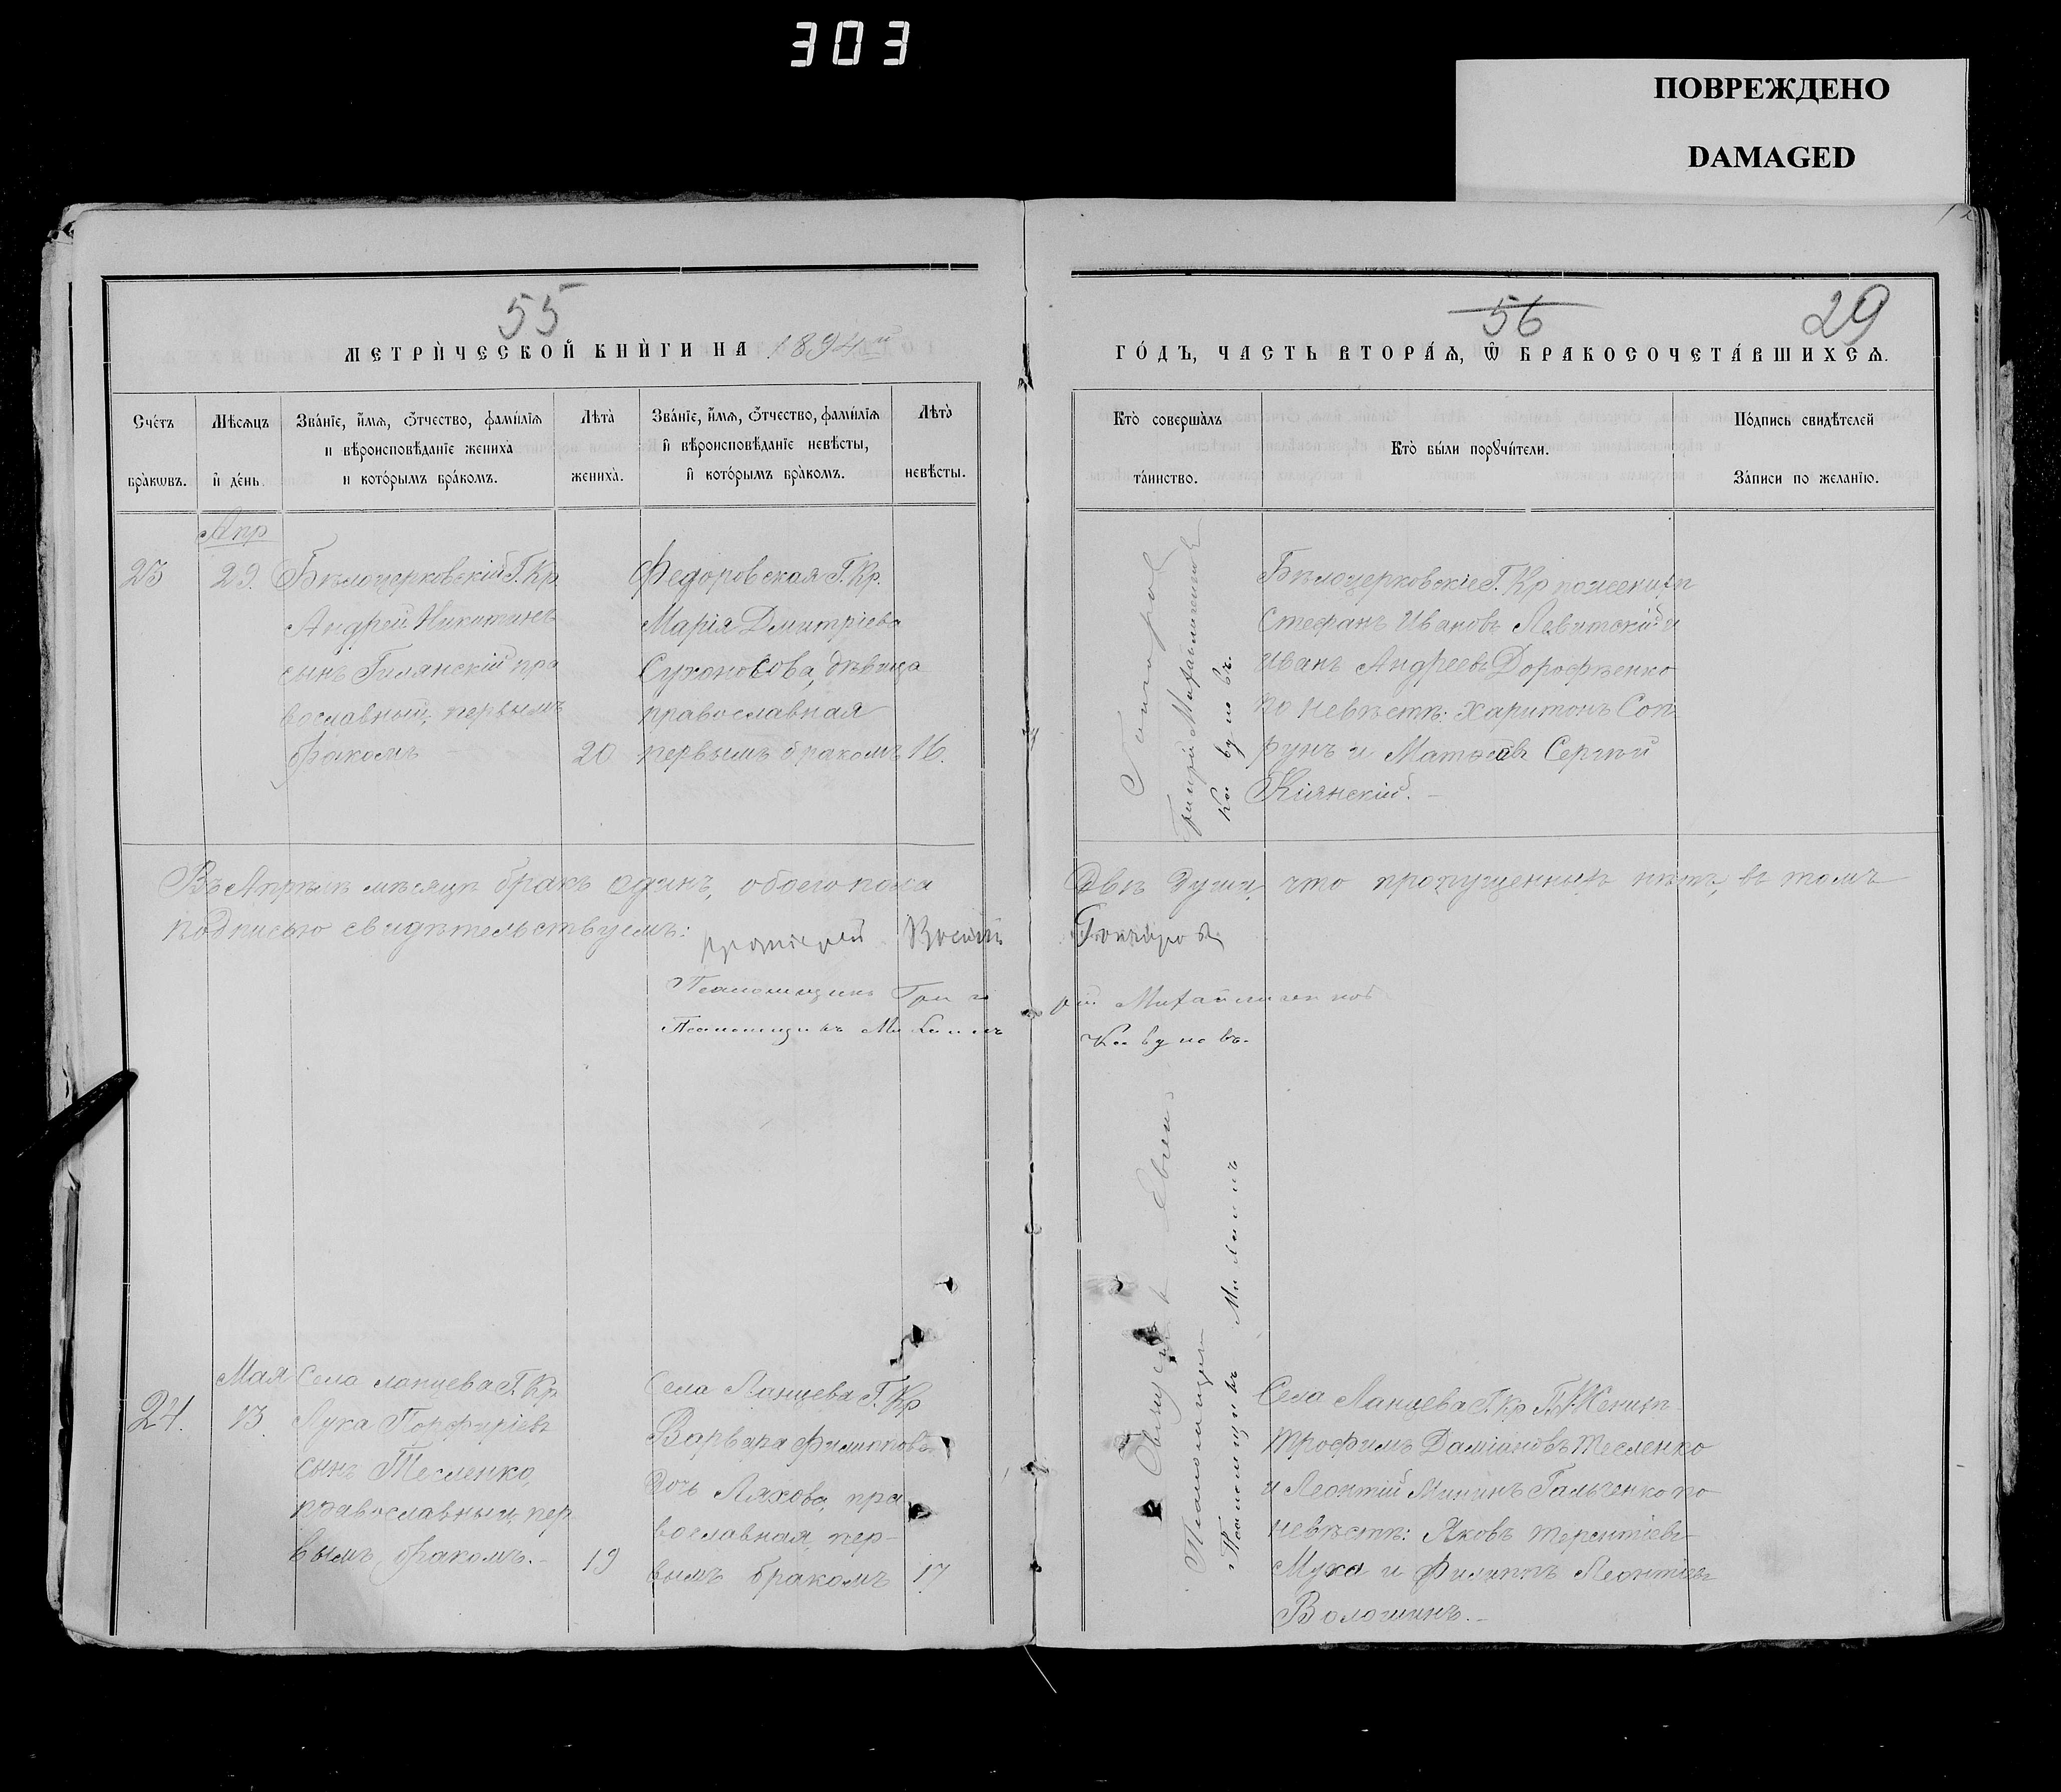 303
ПОВРЕЖДЕНО
DAMAGED
55
МЕТРИЧЕСКОЙ КНИГИ НА 1894й
Счетъ браковъ.
Мѣсяцъ и день.
Званіе, имя, отчество, фамилія и вѣроисповѣданіе жениха и которымъ бракомъ.
Лѣта жениха.
Званіе, имя, отчество, фамилія и вѣроисповѣданіе невѣсты, и которымъ бракомъ.
Лѣта невѣсты.
Апр
23
29.
Бѣлоцерковскій Г. Кр
Андрей Никитинъ
сынъ Гилянскій пра
вославный, первымъ
бракомъ
20
Федоровская Г. Кр.
Марія Дмитріева
Сухоносова, дѣвица
православная
первымъ бракомъ
16.
Въ Апрѣлѣ мѣсяцѣ бракъ одинъ, обоего пола
подписью свидѣтельствуемъ:
Псаломщикъ Григо
Псаломщикъ Ми
24.
Мая
13.
Села Ланцева Г. Кр
Лука Порфиріевъ
сынъ Тесленко,
православный, пер
вымъ бракомъ.
19
Села Ланцева Г. Кр
Варвара Филиппова
дочь Ляхова, пра
вославная, пер-
вымъ бракомъ
17
56
29
ГОДЪ, ЧАСТЬ ВТОРАЯ, Ѡ БРАКОСОЧЕТАВШИХСЯ.
Кто совершалъ таинство.
Кто были поручители.
Подпись свидѣтелей записи по желанію.
Григорій Михайличенков
Кавуновъ.
Бѣлоцерковскіе Г. Кр по жениху
Стефанъ Ивановъ Левитскій и
Иванъ Андреевъ Дорофѣенко
по невѣстѣ: Харитонъ Соп
рунъ и Сергѣй
Кіянскій.
Двѣ души, что пропущенныхъ нѣтъ, въ томъ
рій Михайличенков
Кавуновъ.
Псаломщикъ
Псаломщикъ
Села Ланцева Г. Кр По Жениху
Трофимъ Даміановъ Тесленко
и Леонтій Мининъ Гальченко по
невѣстѣ: Яковъ Терентіевъ
Муха и Филиппъ Леонтіевъ
Волошинъ.